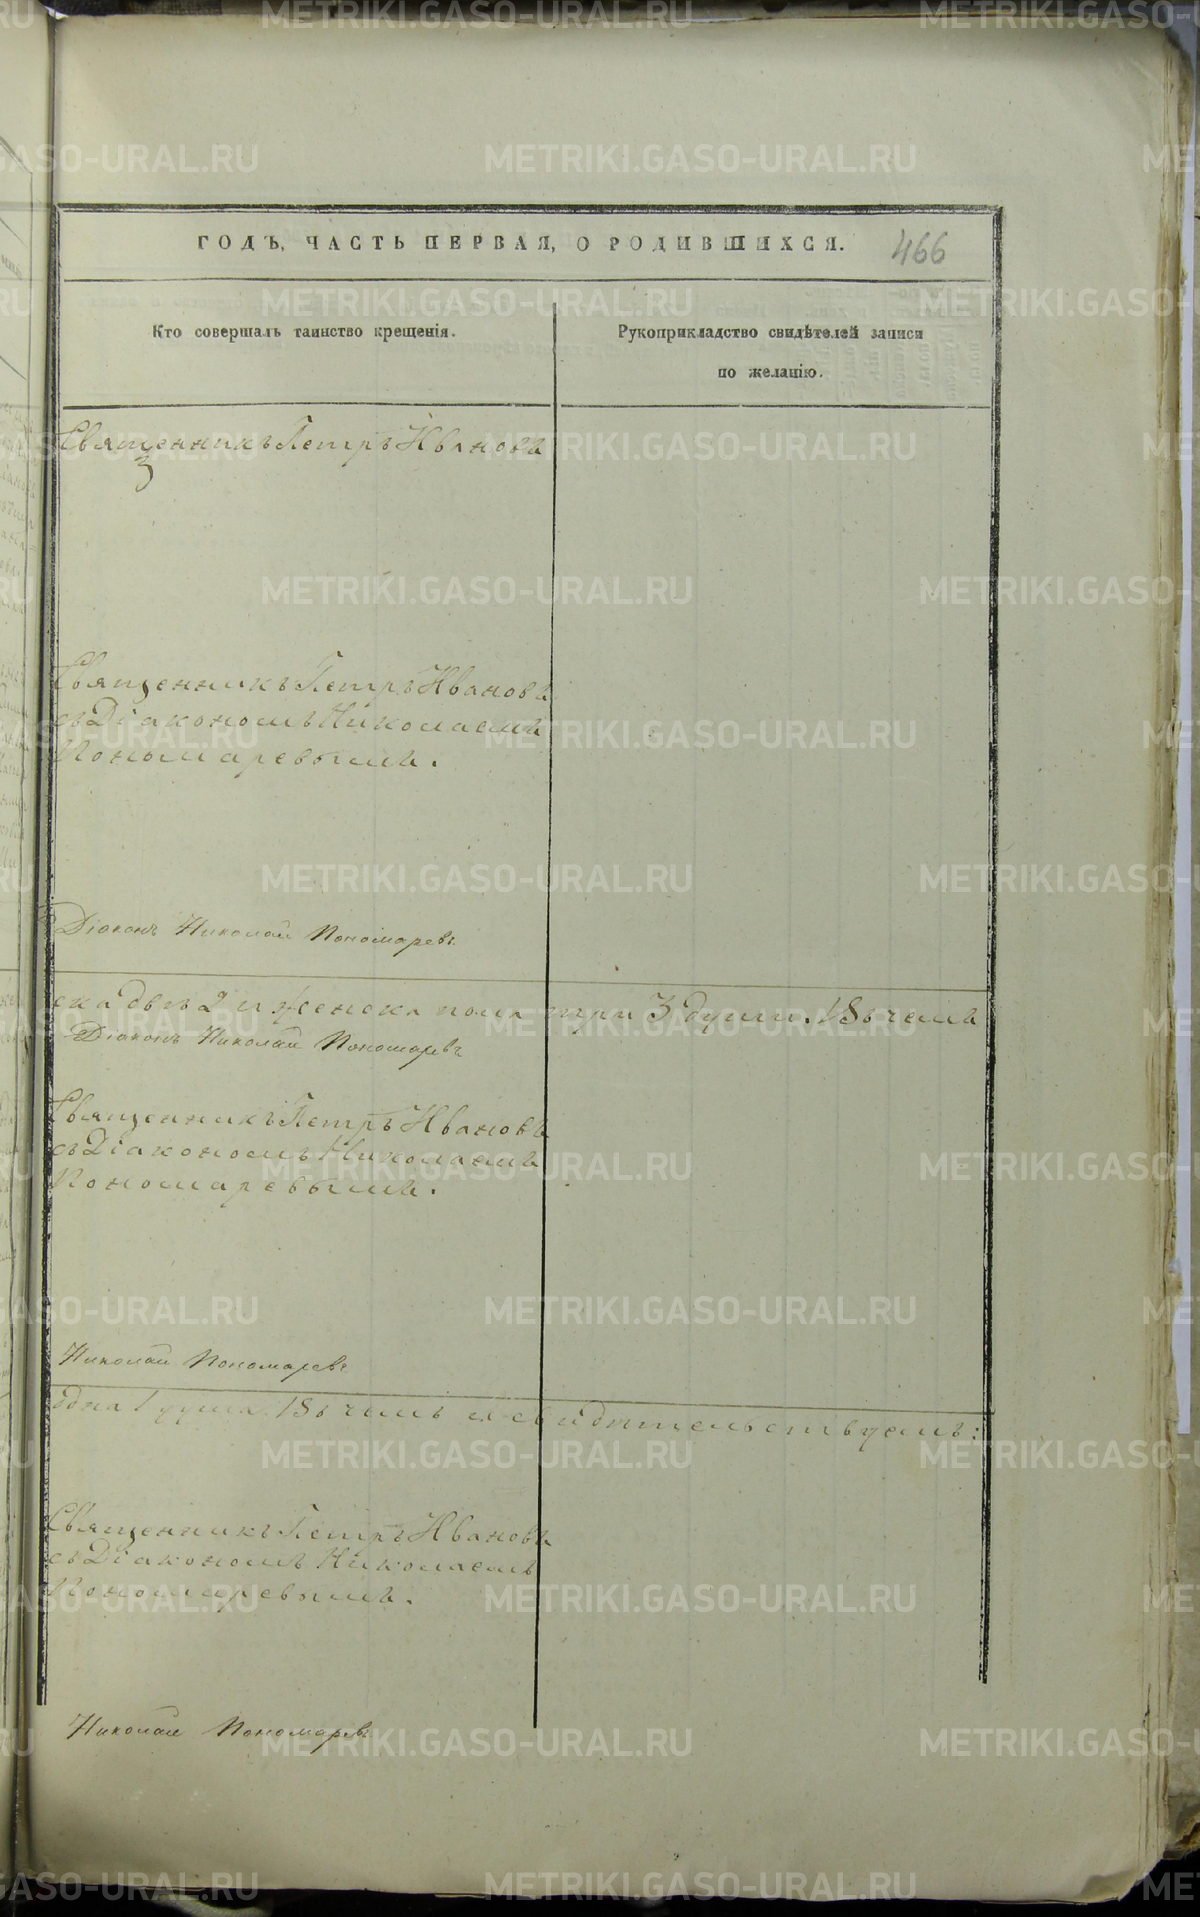 ГОДЪ, ЧАСТЬ ПЕРВАЯ, О РОДИВШИХСЯ. 466
Кто совершалъ таинство крещенія.
Рукоприкладство свидѣтелей записи
по желанію.
Священникъ Петръ Ивановъ
Священникъ Петръ Ивановъ
съ Діакономъ Николаемъ
Пономаревымъ.
Діаконъ Николай Пономаревъ
ска двѣ 2 и женска пола три 3 души. Въ чемъ
Діаконъ Николай Пономаревъ
Священникъ Петръ Ивановъ
съ Діакономъ Николаемъ
Пономаревымъ.
Николай Пономаревъ
одна 1 душа. Въ чемъ и свидѣтельствуемъ:
Священникъ Петръ Ивановъ
съ Діакономъ Николаемъ
Пономаревымъ.
Николай Пономаревъ
METRIKI.GASO-URAL.RU